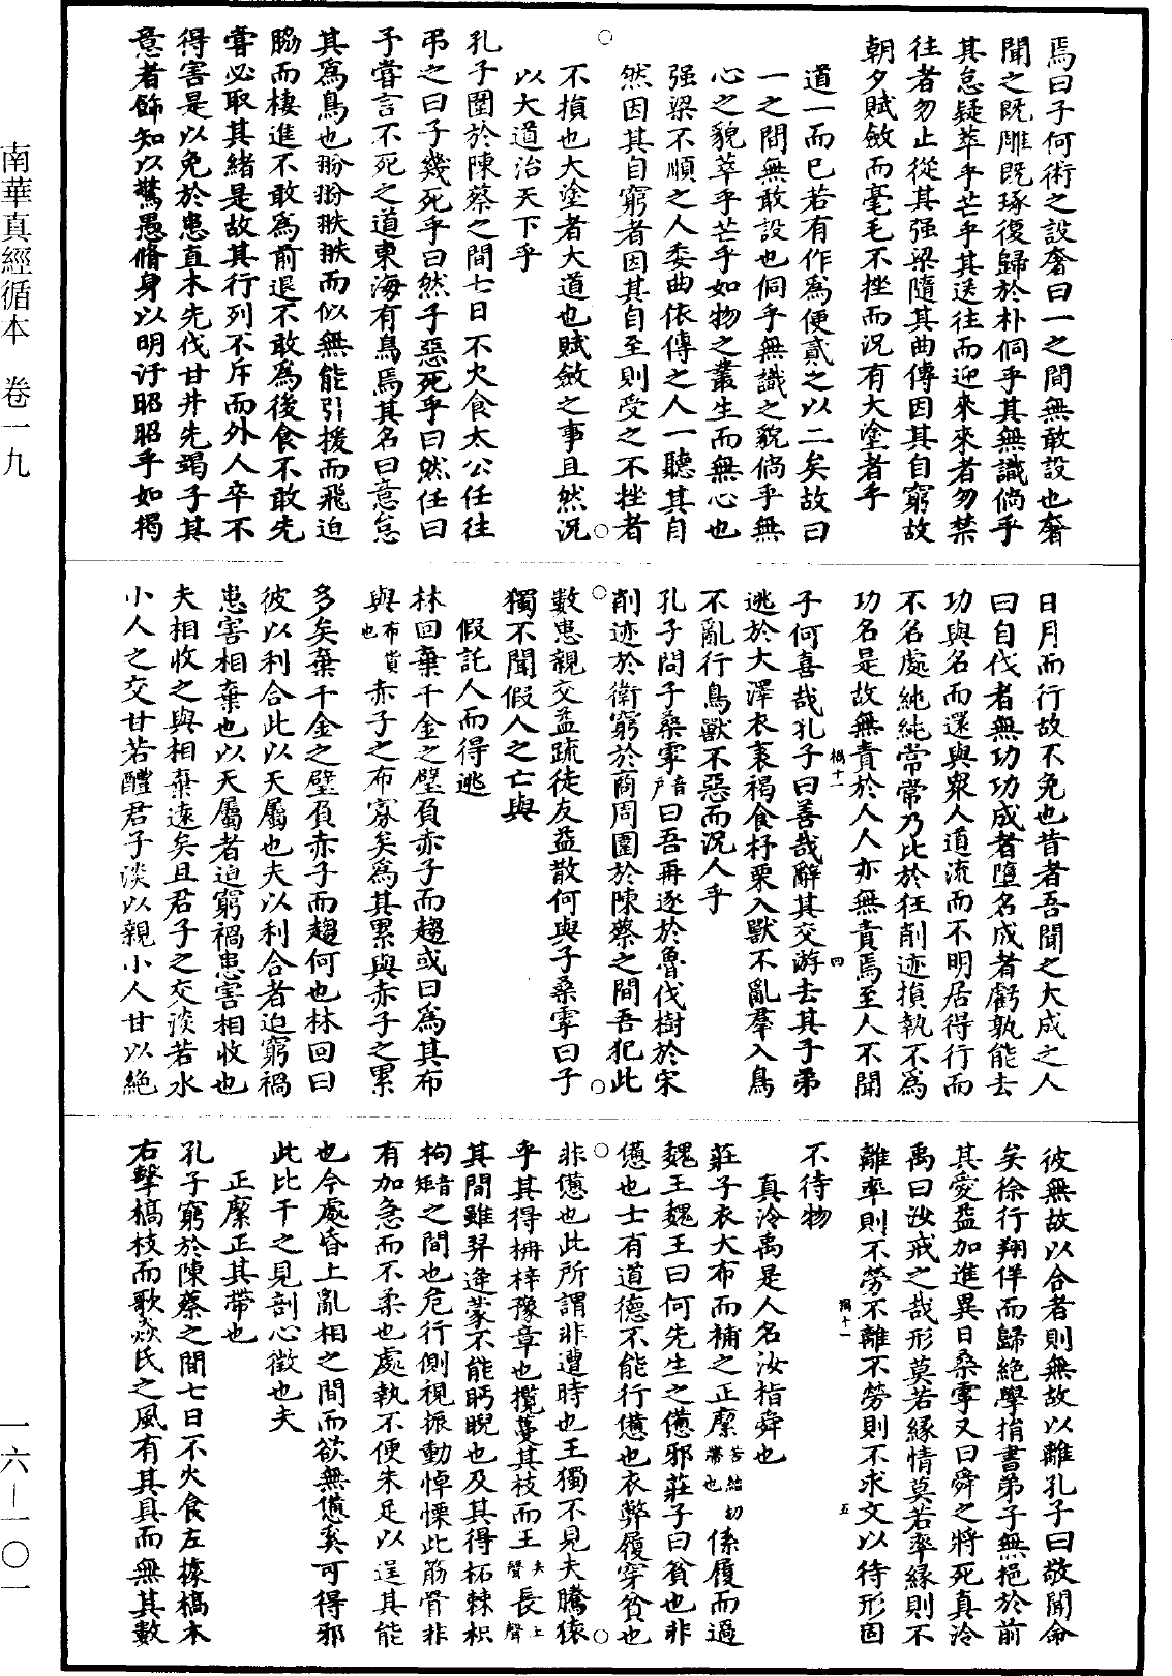 南華真經循本　卷一九
一六—一〇一
焉曰子何術之設奢曰一之間無敢設也奢
聞之既雕既琢復歸於朴侗乎其無識倘乎
其怠疑萃乎芒乎其送往而迎來來者勿禁
往者勿止從其强梁隨其曲傳因其自窮故
朝夕賦斂而毫毛不挫而況有大塗者乎
道一而已若有作為便貳之以二矣故曰
一之間無敢設也侗乎無識之貌倘乎無
心之貌萃乎芒乎如物之叢生而無心也
强梁不順之人委曲依傳之人一聽其自
然因其自窮者因其自至則受之不挫者
不損也大塗者大道也賦斂之事且然況
以大道治天下乎
孔子圍於陳蔡之間七日不火食太公任往
弔之曰子幾死乎曰然子惡死乎曰然任曰
予嘗言不死之道東海有鳥焉其名曰意怠
其為鳥也翂翂翐翐而似無能引援而飛迫
脇而棲進不敢為前退不敢為後食不敢先
嘗必取其緒是故其行列不斥而外人卒不
得害是以免於患直木先伐甘井先竭子其
意者飾知以驚愚脩身以明汙昭昭乎如揭
日月而行故不免也昔者吾聞之大成之人
曰自伐者無功功成者墮名成者虧孰能去
功與名而還與眾人道流而不明居得行而
不名處純純常常乃比於狂削迹損執不為
功名是故無責於人人亦無責焉至人不聞
子何喜哉孔子曰善哉辭其交游去其子弟
逃於大澤衣裘褐食杼栗入獸不亂羣入鳥
不亂行鳥獸不惡而況人乎
孔子問子桑雽音戶曰吾再逐於魯伐樹於宋
削迹於衛窮於商周圍於陳蔡之間吾犯此
數患親交益疏徒友益散何與子桑雽曰子
獨不聞假人之亡與
假託人而得逃
林回棄千金之璧負赤子而趨或曰為其布
與布貨也赤子之布寡矣為其累與赤子之累
多矣棄千金之璧負赤子而趨何也林回曰
彼以利合此以天屬也夫以利合者迫窮禍
患害相棄也以天屬者迫窮禍患害相收也
夫相收之與相棄遠矣且君子之交淡若水
小人之交甘若醴君子淡以親小人甘以絕
彼無故以合者則無故以離孔子曰敬聞命
矣徐行翔佯而歸絕學捐書弟子無挹於前
其愛益加進異日桑雽又曰舜之將死真泠
禹曰汝戒之哉形莫若緣情莫若率緣則不
離率則不勞不離不勞則不求文以待形固
不待物
真泠禹是人名汝指舜也
莊子衣大布而補之正緳苦結切帶也係履而過
魏王魏王曰何先生之憊邪莊子曰貧也非
憊也士有道德不能行憊也衣弊履穿貧也
非憊也此所謂非遭時也王獨不見夫騰猿
乎其得枏梓豫章也攬蔓其枝而王去聲長上聲
其間雖羿逄蒙不能眄睨也及其得柘棘枳
枸音矩之間也危行側視振動悼慄此筋骨非
有加急而不柔也處執不便未足以逞其能
也今處昏上亂相之間而欲無憊奚可得邪
此比干之見剖心徵也夫
正緳正其帶也
孔子窮於陳蔡之間七日不火食左據槁木
右擊槁枝而歌猋氏之風有其具而無其數